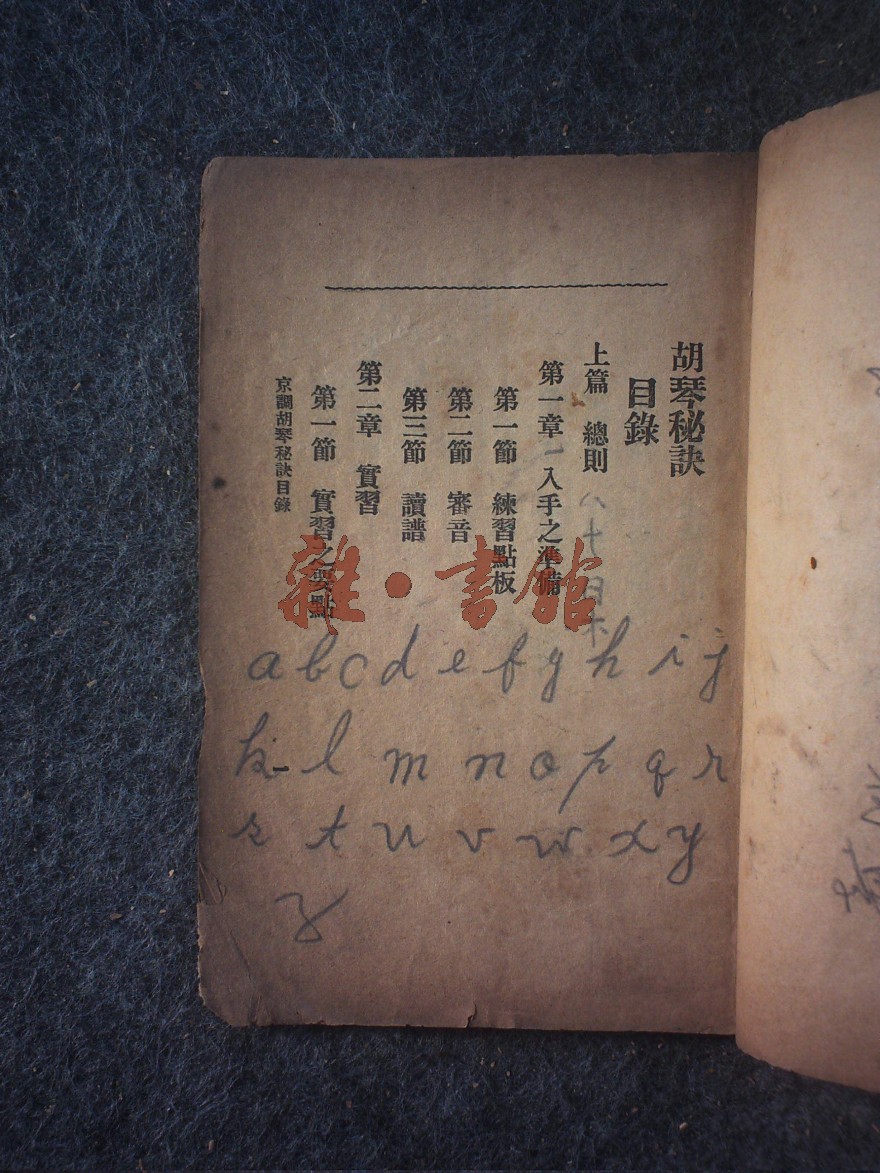 胡琴秘訣
目錄
上篇　總則
第一章　入手之準備
第一節　練習點板
第二節　審音
第三節　讀譜
第二章　實習
第一節　實習之要點
京調胡琴秘訣目錄
雜·書館
a b c d e f g h i j
k l m n o p q r
s t u v w x y
z